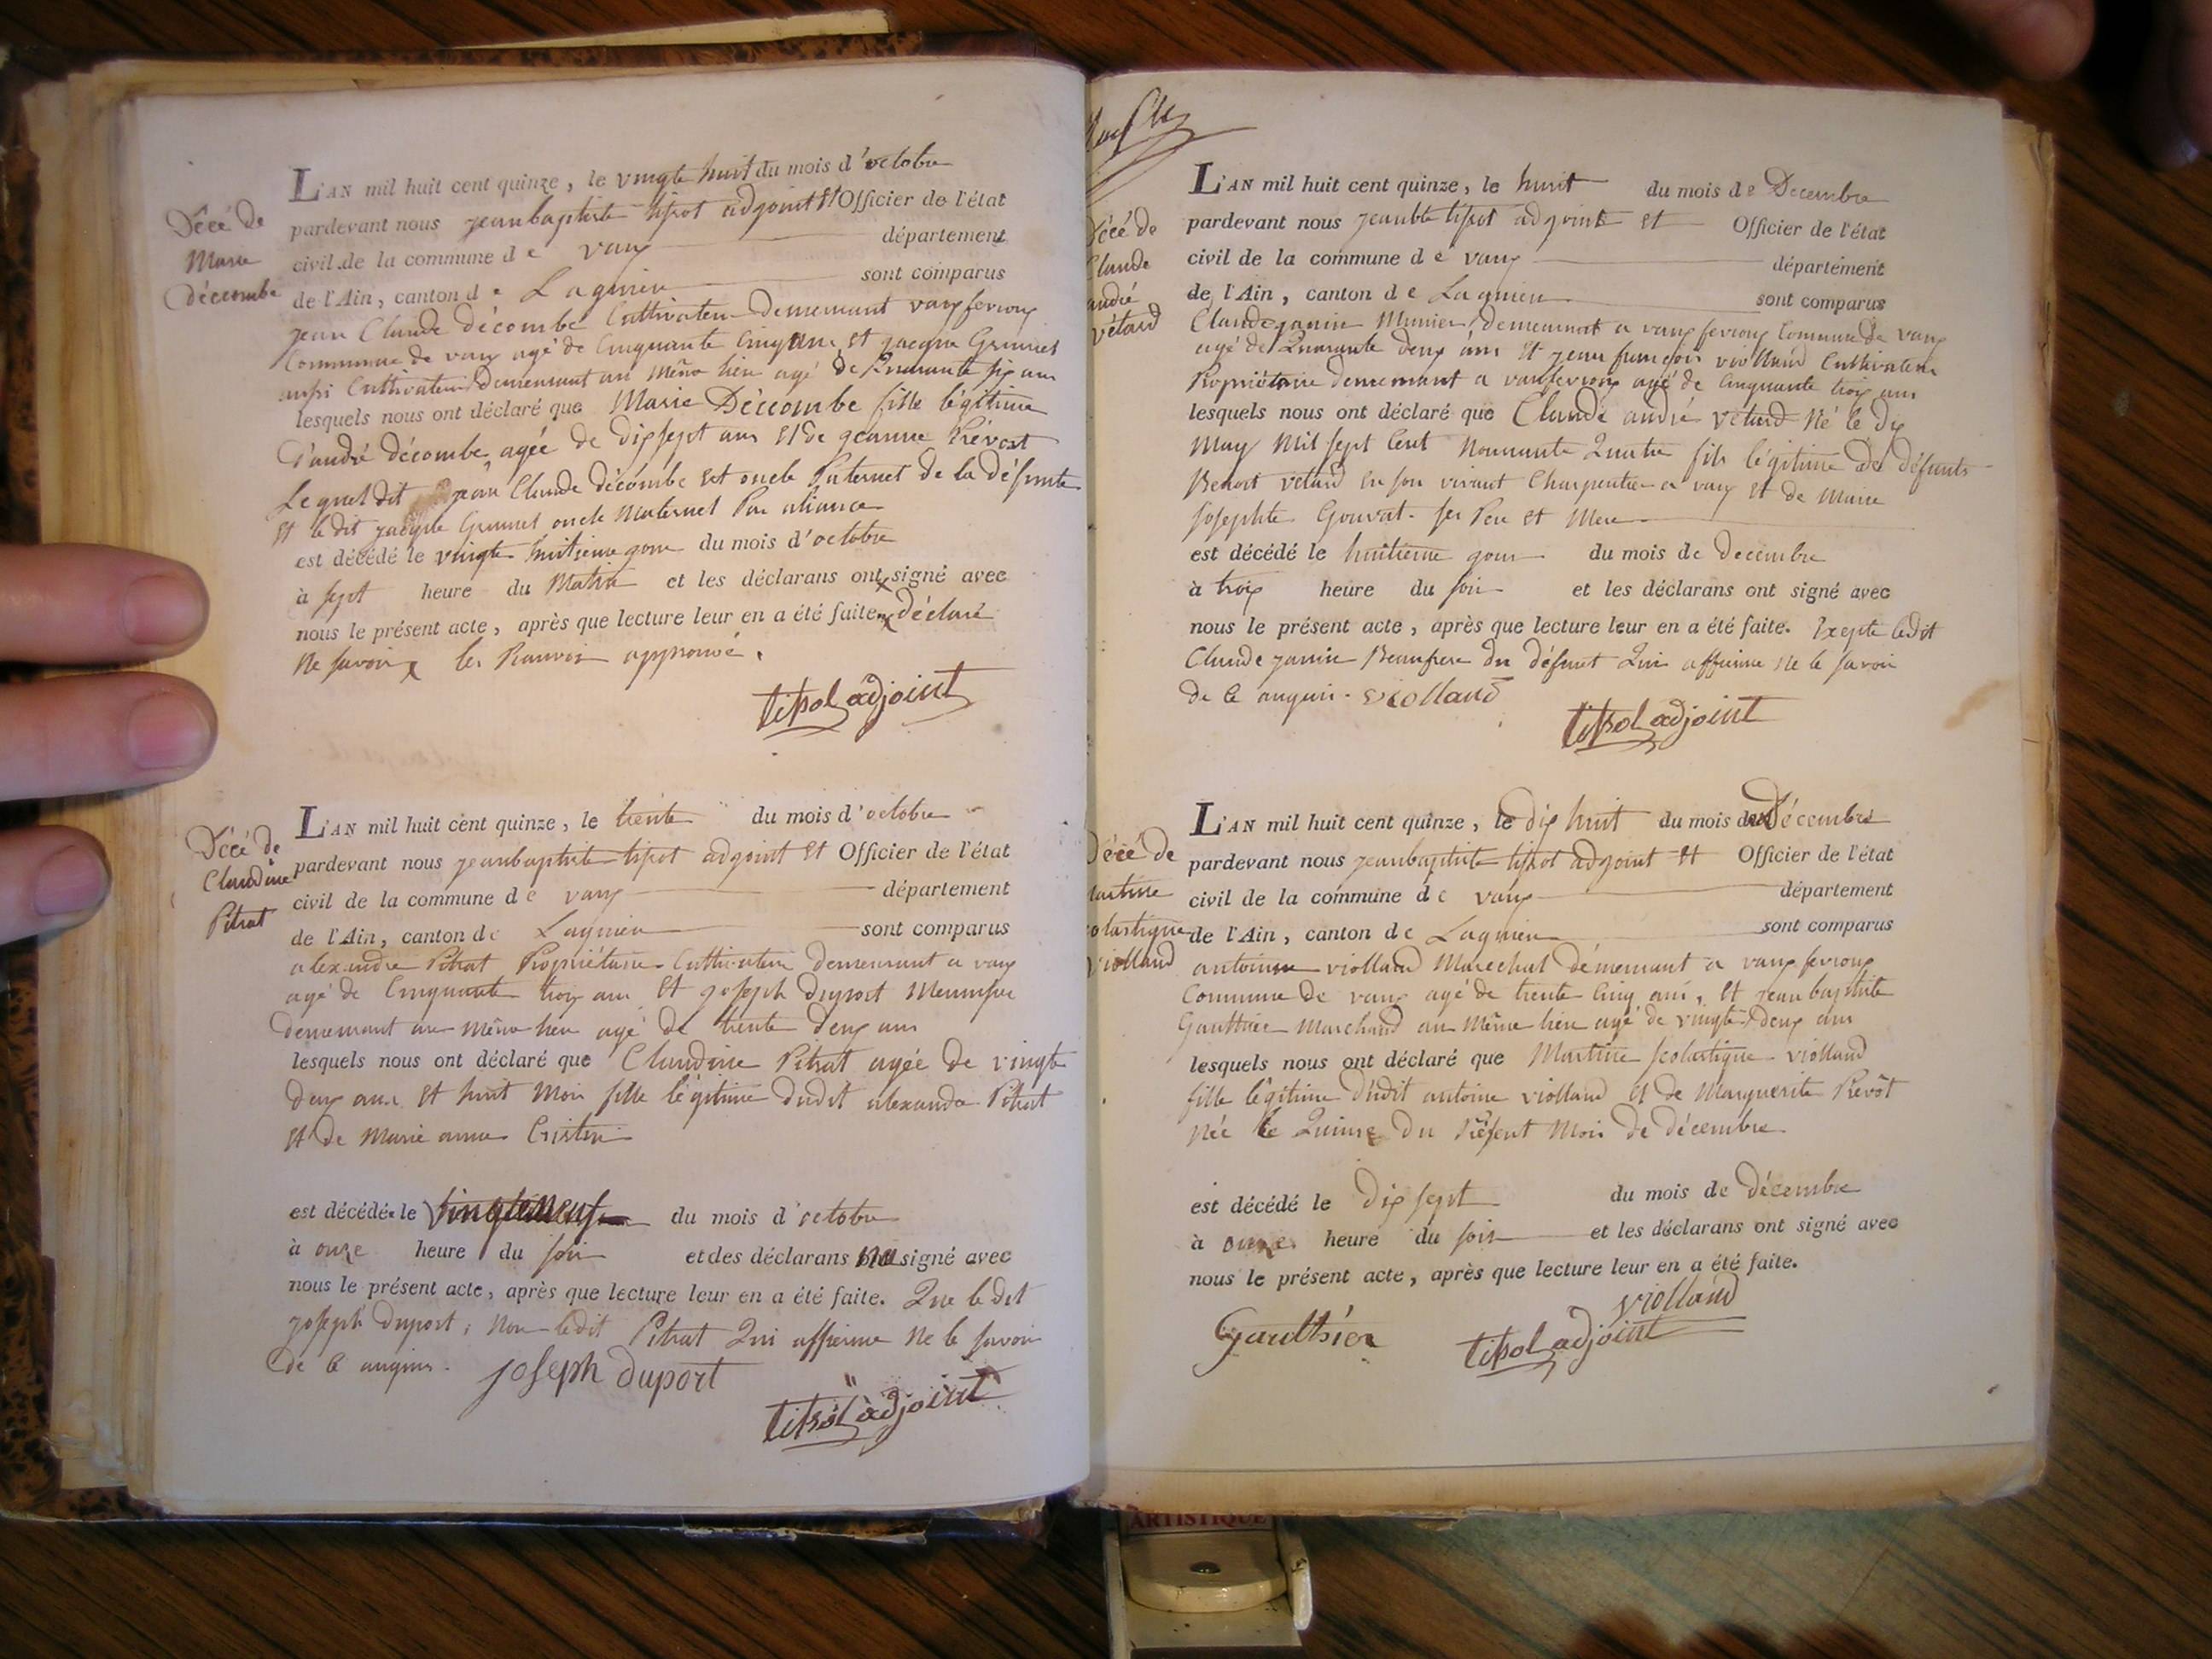 Décé de
Marie
décombe
L'AN mil huit cent quinze, le vingte huit du mois d'octobre
pardevant nous jeanbaptiste tissot adjoint et Officier de l'état
civil de la commune de vaux département
de l'Ain, canton de Lagnieu sont comparus
jean Claude décombe Cultivateur demeurant vaux fevroux
Commune de vaux agé de Cinquante Cinq ans et jacque Grumet
aussi Cultivateur demeurant au même lieu agé de Quarante six ans
lesquels nous ont déclaré que Marie Décombe fille légitime
d'andré décombe, agée de dix sept ans et de jeanne Prévost
Lequel dit jean Claude décombe est oncle Paternel de la défunte
et le dit jacque Grumet oncle Maternel Par aliance
est décédé le vingte huitieme jour du mois d'octobre
à sept heure du Matin et les déclarans ont signé avec
nous le présent acte, après que lecture leur en a été faite déclaré
Ne savoir les Ranvoir approuvé.
tissot adjoint
Décé de
Claudine
Pitrat
L'AN mil huit cent quinze, le trente du mois d'octobre
pardevant nous jeanbaptiste tissot adjoint et Officier de l'état
civil de la commune de vaux département
de l'Ain, canton de Lagnieu sont comparus
alexandre Pitrat Propriétaire Cultivateur demeurant a vaux
agé de Cinquante trois ans et joseph duport Menuisier
demeurant au même lieu agé de trente deux ans
lesquels nous ont déclaré que Claudine Pitrat agée de vingte
deux ans et huit Mois fille légitime dudit alexandre Pitrat
et de Marie anne Cristin
est décédée le vingteneuf du mois d'octobre
à onze heure du soir et des déclarans ont signé avec
nous le présent acte, après que lecture leur en a été faite. Que le dit
joseph duport, Non ledit Pitrat Qui affirme Ne le savoir
de ce anquis. joseph duport
tissot adjoint
Décé de
Claude
andré
vétard
L'AN mil huit cent quinze, le huit du mois de Decembre
pardevant nous jeanbte tissot adjoint et Officier de l'état
civil de la commune de vaux département
de l'Ain, canton de Lagnieu sont comparus
Claude janin Munier, demeurant a vaux fevroux Commune de vaux
agé de Quarante deux ans et jean françois violland Cultivateur
Propriétaire demeurant a vauxfevroux agé de Cinquante trois ans
lesquels nous ont déclaré que Claude andré vetard Né le dix
May Mil sept Cent Nonnante Quatre fils légitime de défunts
Benoit vetard en son vivant Charpentier a vaux et de Marie
Josephte Gouvat ses Pere et Mere
est décédé le huitieme jour du mois de decembre
à trois heure du soir et les déclarans ont signé avec
nous le présent acte, après que lecture leur en a été faite. Exepte ledit
Claude janin Beaufrere du défunt Qui affirme Ne le savoir
de ce anquis. violland
tissot adjoint
Décé de
Martine
scolastique
violland
L'AN mil huit cent quinze, le dix huit du mois de Décembre
pardevant nous jeanbaptiste tissot adjoint et Officier de l'état
civil de la commune de vaux département
de l'Ain, canton de Lagnieu sont comparus
antoine violland Marechal demeurant a vaux fevroux
Commune de vaux agé de trente Cinq ans, et jean baptiste
Gauthier Marchand au même lieu agé de vingte deux ans
lesquels nous ont déclaré que Martine scolastique violland
fille légitime dudit antoine violland et de Marguerite Prevôt
Née le Quinze du Présent Mois de décembre
est décédé le dix sept du mois de décembre
à onze heure du soir et les déclarans ont signé avec
nous le présent acte, après que lecture leur en a été faite.
violland
Gaulthier tissot adjoint
ARTISTIQUE